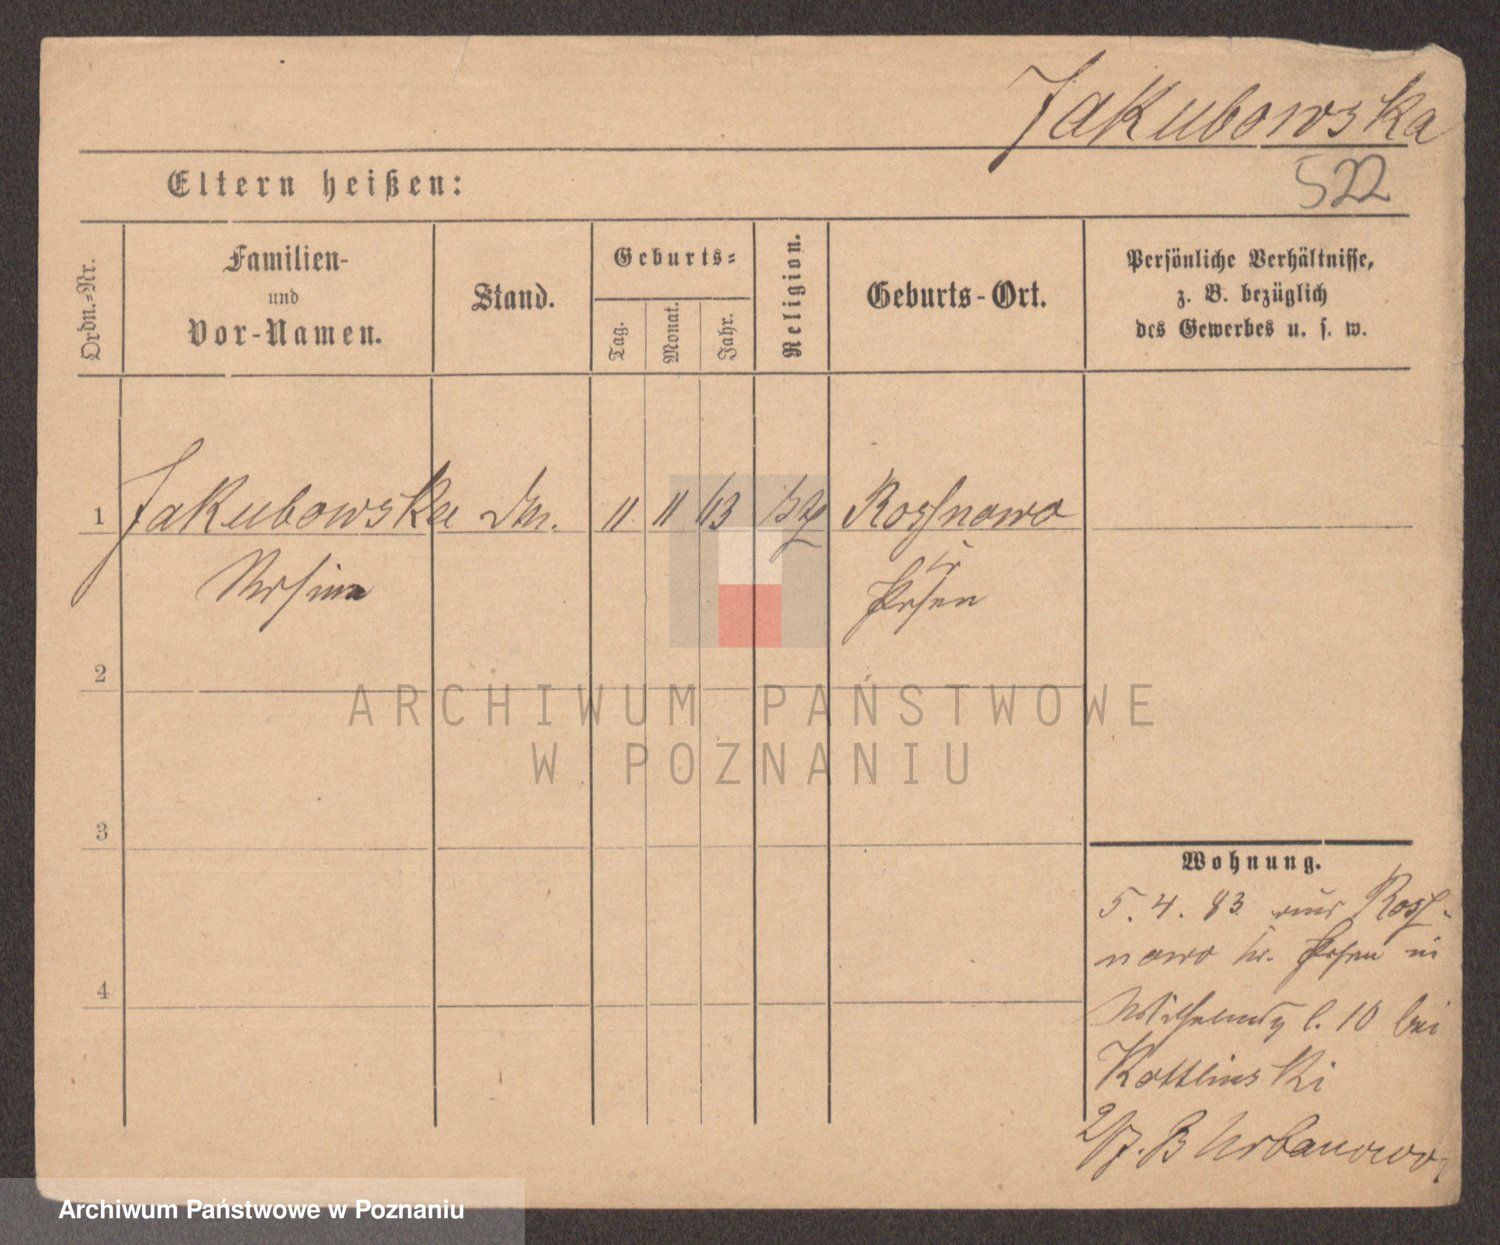 Jakubowska
522
Eltern heißen:
Ordn.=Nr.
Familien-
und
Vor-Namen.
Stand.
Geburts=
Tag.
Monat.
Jahr.
Religion.
Geburts-Ort.
Persönliche Verhältnisse,
z. B. bezüglich
des Gewerbes u. s. w.
1 Jakubowska 11 11 63 Rossnowo
Kr
Posen
2
3
4
Wohnung.
5. 4. 83 aus Ross-
nowo Kr. Posen in
10 bei
Kottlinski
Urbanowo
ARCHIWUM PAŃSTWOWE
W POZNANIU
Archiwum Państwowe w Poznaniu